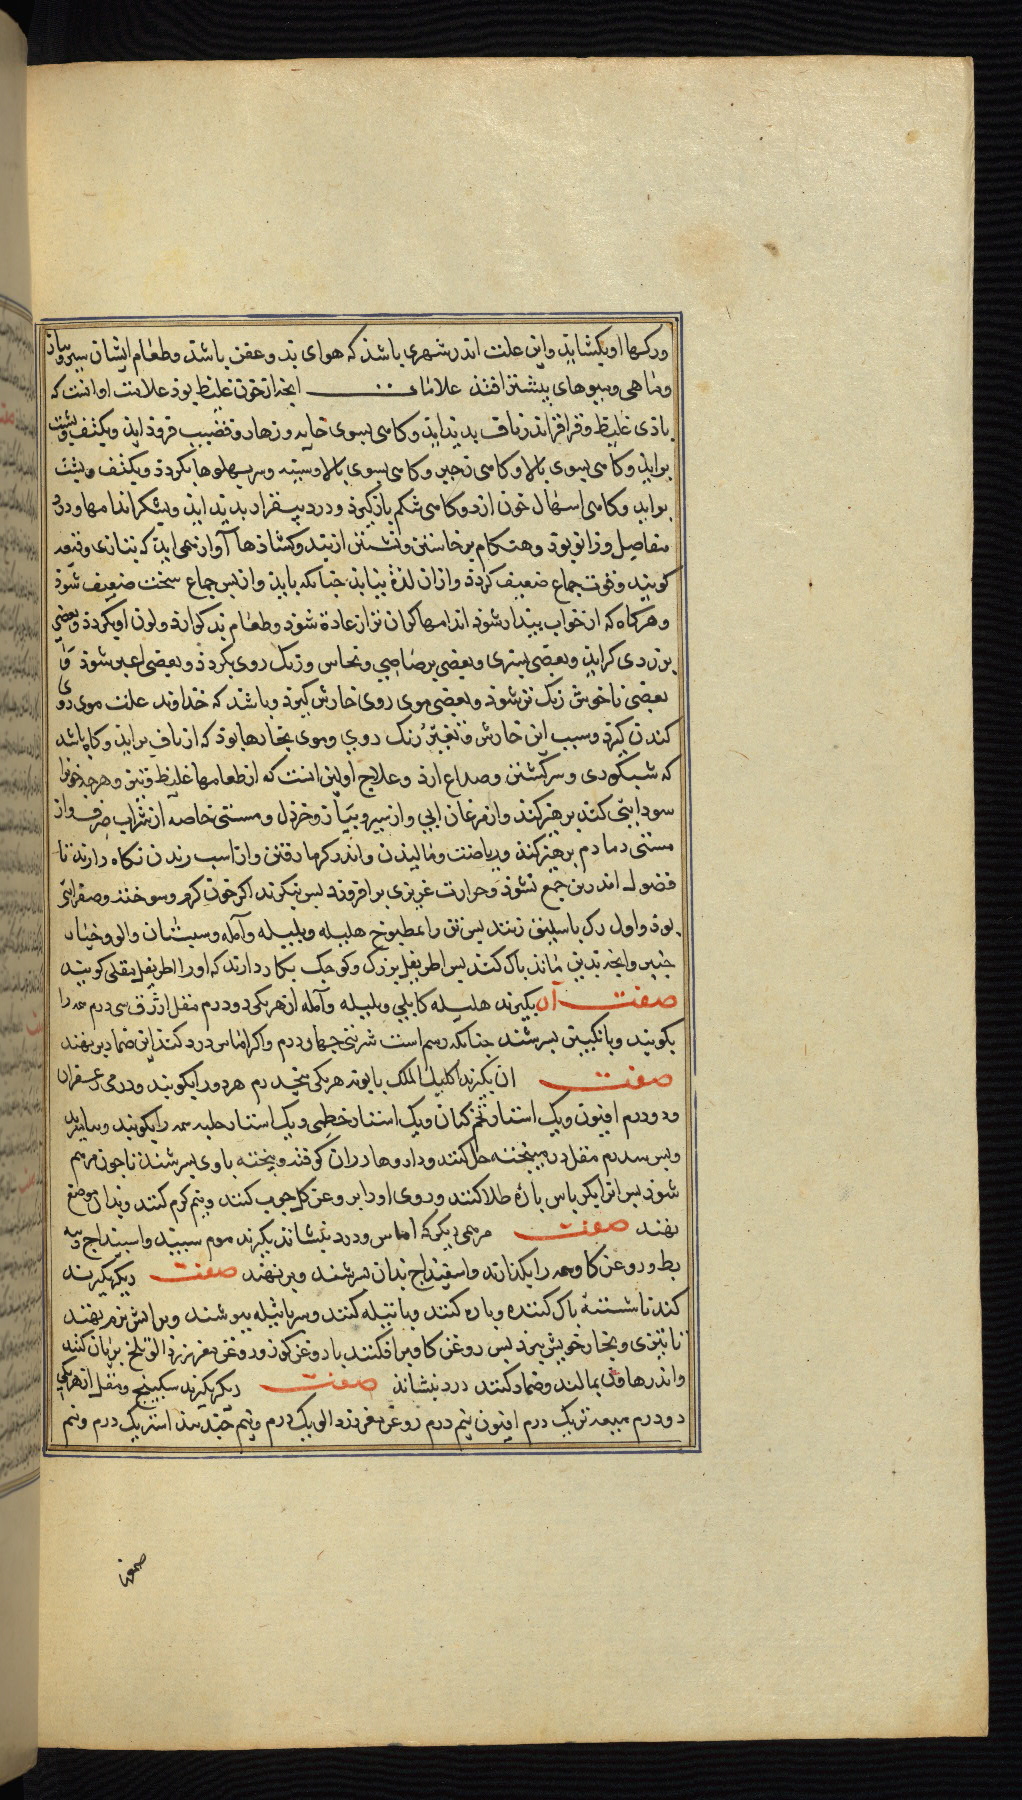 ورکها او بکشاید واین علت اندر شهری باشذ که هوای بد وعفن باشد وطعام ایشان سیر وپیاز
وماهی ومیوهای بیشتر افتذ علامات انجه از خون غلیظ بوذ علامت او انست که
باذی غلیظ وقراقر اندر ناف بدیداید وکاهی بسوی خایه وزهار وقضیب فروذاید وبکتف وپشت
براید وکاهی بسوی بالا وکاهی بسوی بالا وسینه وسر پهلوها بکردذ وبکتف وپشت
براید وکاهی اسهال خون ارد وکاهی شکم بازکیرذ ودرد بیقرار بدیداید وبیشتر اندامها ودر
مفاصل وزانو بوذ وهنکام برخاستن ونشستن از بند وکشاذها آواز همی اید که بتازی
کویند وقوت جماع ضعیف کردذ وازان لذة نیابذ جنانکه بایذ واز پس جماع سخت ضعیف شوذ
وهرکاه که از خواب بیدار شوذ اندامها کران تر از عادة شوذ وطعام بد کوارذ ولون او بکردذ وبعضی
بزردی کراید وبعضی بتیرکی وبعضی برصاصی ونحاس ورنک روی بکردذ وبعضی اغبر شوذ
بعضی ناخوش رنک تر شوذ وبعضی موی روی خارش کیرذ وباشد که خداوند علت موی روی
کندن کیرذ وسبب این خارش وتغیر رنک روی وموی بخارها بوذ که از ناف براید وکاه باشد
که شبکوری وسرکشتن وصداع ارذ وعلاج اولین انست که از طعامها غلیظ وهرجه خون را
سودایی کند پرهیز کنذ واز مرغان ابی واز سیر وپیاز وخردل ومستی خاصه از شراب صرف واز
مستی دمادم پرهیز کنذ وریاضت ومالیذن واندر کرمابه رفتن واز اسب رندن نکاه دارند تا
فضول اندرین جمع نشوذ وحرارت غریزی برافروزد پس بنکرند اکر خون کرم وسوخته وصفرایی
بوذ واول رک باسلیق زنند پس تن را بمطبوخ هلیله وبلیله وآمله وسپستان والو وخیار
جنبر وانجه بدین ماند پاک کنند پس اطریفل بزرک وکوجک بکار دارند که اورا اطریفل مقلی کویند
صفت آن بکیرند هلیله کابلی وبلیله وآمله از هریکی ده درم مقل ازرق سی درم همه را
بکوبند وبا انکبین بسرشند جنانکه رسم است شربتی جهار درم واکر اماس درد کند این ضماد برنهند
صفت ان بکیرند اکلیل الملک بابونه هریکی پنج درم هردو را بکوبند ودرمی زعفران
ودو درم افیون ویک استار تخم کتان ویک استار خطمی ویک استار حلبه همه را بکوبند وبیامیزند
وپس سه درم مقل در میبختنه حل کنند وداروها دران کوفته وبیخته باوی بسرشند تا جون مرهم
شوذ پس انرا بکرباس پاره طلا کنند وروی اورا بروغن کل جرب کنند ونیم کرم کنند وبدان موضع
نهند صفت مرهمی دیکر که اماس ودرد بنشاند بکیرند موم سپید واسپیداج وپیه
بط وروغن کاو همه را بکدازند واسفیداج بدان بسرشند وبرنهند صفت دیکر بکیرند
کندنا شسته پاک کننده وپاره کنند وپاتیله کنند وسر پاتیله بپوشند وبر اتش نرم نهند
تا بتزی وبخار خویش بپزد پس روغن کاو برافکنند یا روغن کوز وروغن مغز زردالو تلخ بریان کنند
واندر هاون بمالند وضماد کنند درد بنشاند صفت دیکر بکیرند سکبینج ومقل از هریکی
دو درم میعه تر یک درم افیون نیم درم روغن مغز زردالو یک درم ونیم جند بیدستر یک درم ونیم
صمغ